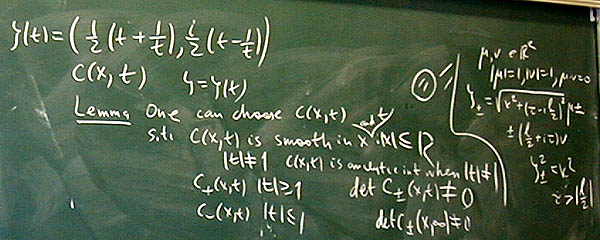 ζ(t) = ( 1/2 (t + 1/t), i/2 (t - 1/t) )
C(x,t) ζ = ζ(t)
Lemma One can choose C(x,t)
s.t. C(x,t) is smooth in x and t, |x| ≤ R
|t| ≠ 1 C(x,t) is analytic in t when |t| ≠ 1
C₊(x,t) |t| ≥ 1 det C±(x,t) ≠ 0
C₋(x,t) |t| ≤ 1 det C±(x,∞) ≠ 0
μ, ν ∈ ℝ²
|μ| = 1, |ν| = 1, μ·ν = 0
ζ± =
ζ±² = k²